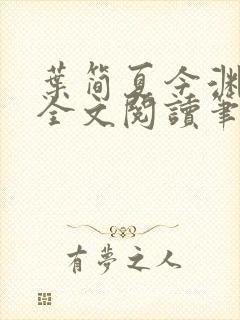 葉簡夏今淵
全文閱讀筆
有夢之人